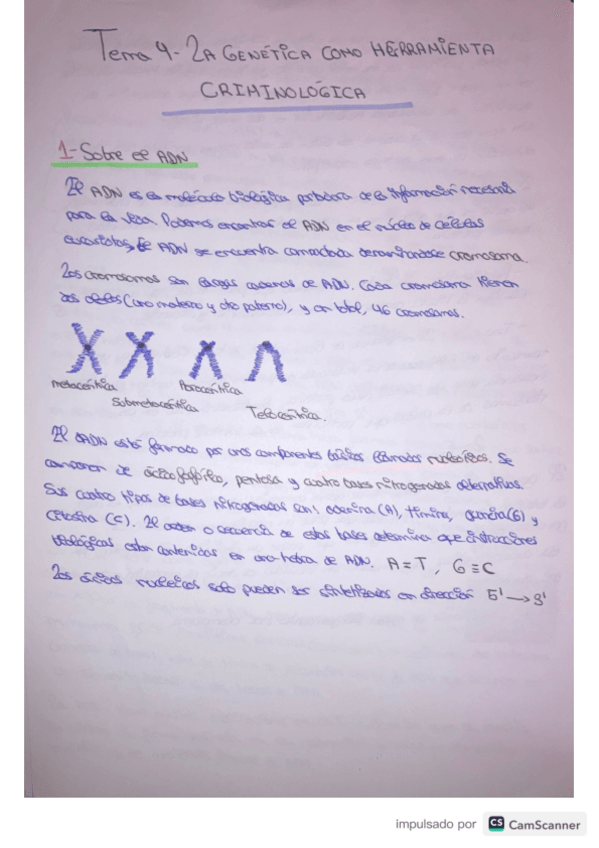 Tema 4- LA GENÉTICA COMO HERRAMIENTA
CRIMINOLÓGICA
1- Sobre el ADN
El ADN es la molécula biológica portadora de la información necesaria
para la vida. Podemos encontrar el ADN en el núcleo de células
eucariotas, el ADN se encuentra denominándose cromosoma.
Los cromosomas son largas cadenas de ADN. Cada cromosoma tienen
dos (uno materno y otro paterno), y en total, 46 cromosomas.
metacéntrica
Submetacéntrica
Telocéntrica.
El ADN está formado por unos componentes básicos llamados nucleótidos. Se
componen de ácido fosfórico, pentosa y cuatro bases nitrogenadas alternativas.
Sus cuatro tipos de bases nitrogenadas son: adenina (A), timina, guanina (G) y
citosina (C). El orden o secuencia de estas bases determina que instrucciones
biológicas están contenidas en una hebra de ADN. A=T, G≡C
Los ácidos nucleicos solo pueden ser sintetizados en dirección 5' → 3'
impulsado por CS CamScanner